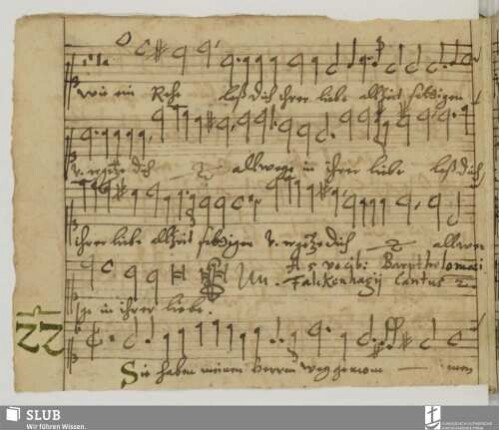 wie ein Rehe laß dich ihrer liebe allzeit settigen
v. ergetze dich allwege in ihrer liebe laß dich
ihrer liebe allzeit settigen v. ergetze dich allwe
ge in ihrer liebe.
A 5 vocib:
Falckenhagij Cantus 2.
22
Sie haben meinen herrn weg genom men
SLUB
Wir führen Wissen.